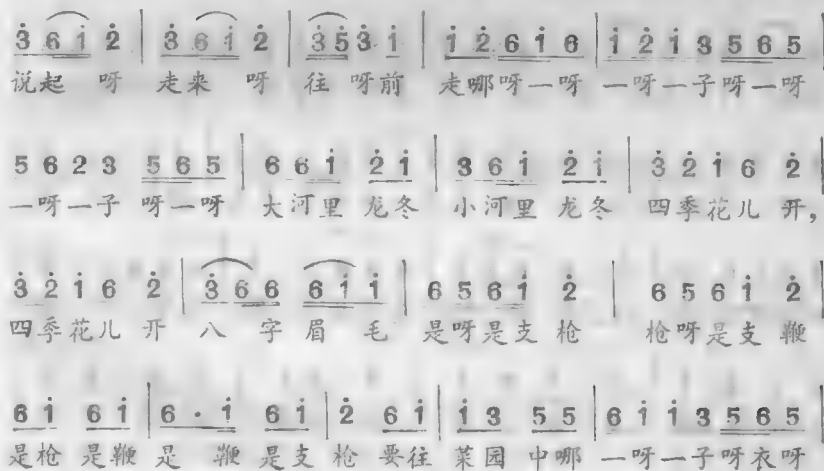 3̇ 6 1̇ 2̇ | 3̇ 6 1̇ 2̇ | 3̇ 5̇ 3̇ 1̇ | 1̇ 2̇ 6 1̇ 6 | 1̇ 2̇ 1̇ 3 5 6 5 |
说起 呀 走来 呀 往 呀前 走哪呀一呀 一呀一子呀一呀
5 6 2 3 5 6 5 | 6 6 1̇ 2̇ 1̇ | 3 6 1̇ 2̇ 1̇ | 3̇ 2̇ 1̇ 6 2̇ |
一呀一子 呀一呀 大河里 龙冬 小河里 龙冬 四季花儿 开,
3̇ 2̇ 1̇ 6 2̇ | 3̇ 6 6 6 1̇ 1̇ | 6 5 6 1̇ 2̇ | 6 5 6 1̇ 2̇ |
四季花儿 开 八 字 眉 毛 是呀是支 枪 枪呀是支 鞭
6 1̇ 6 1̇ | 6 · 1̇ 6 1̇ | 2̇ 6 1̇ | 1̇ 3 5 5 | 6 1̇ 1̇ 3 5 6 5 |
是枪 是鞭 是 鞭 是支 枪 要往 菜园 中哪 一呀一子呀衣呀